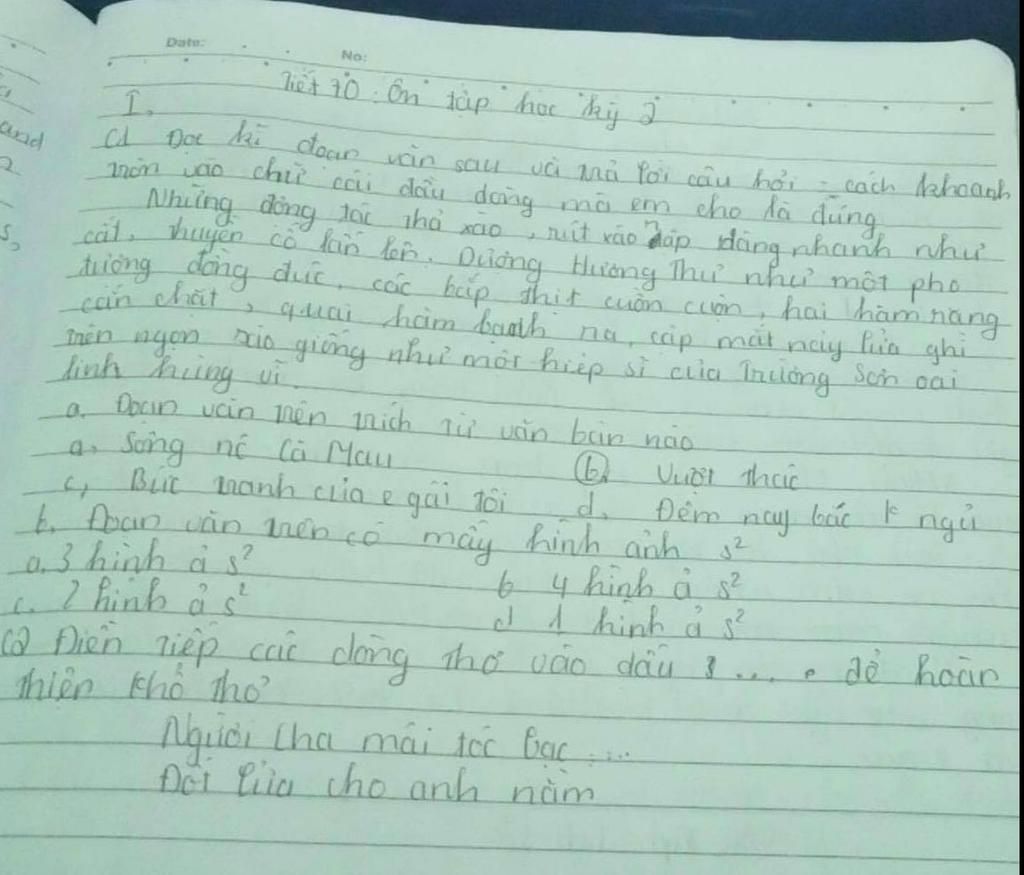 Date:
No:
Tiết 70: Ôn tập học kỳ 2
I.
C1 Đọc kĩ đoạn văn sau và trả lời câu hỏi = cách khoanh
tròn vào chữ cái đầu dòng mà em cho là đúng
Những động tác thả xào, rút xào rập ràng nhanh như
cắt, thuyền cố lấn lên. Dượng Hương Thư như một pho
tượng đồng đúc, các bắp thịt cuồn cuộn, hai hàm răng
cắn chặt, quai hàm banh ra, cặp mắt nảy lửa ghì
trên ngọn sào giống như một hiệp sĩ của Trường Sơn oai
linh hùng vĩ.
a. Đoạn văn trên trích từ văn bản nào
a. Sông nc Cà Mau
b. Vượt thác
c, Bức tranh của e gái tôi
d. Đêm nay bác k ngủ
b. Đoạn văn trên có mấy hình ảnh s²
a. 3 hình ả s²
b 4 hình ả s²
c. 2 hình ả s²
d 1 hình ả s²
C2 Điền tiếp các dòng thơ vào dấu .... để hoàn
thiện khổ thơ
Người cha mái tóc bạc ....
Đốt lửa cho anh nằm
and
2